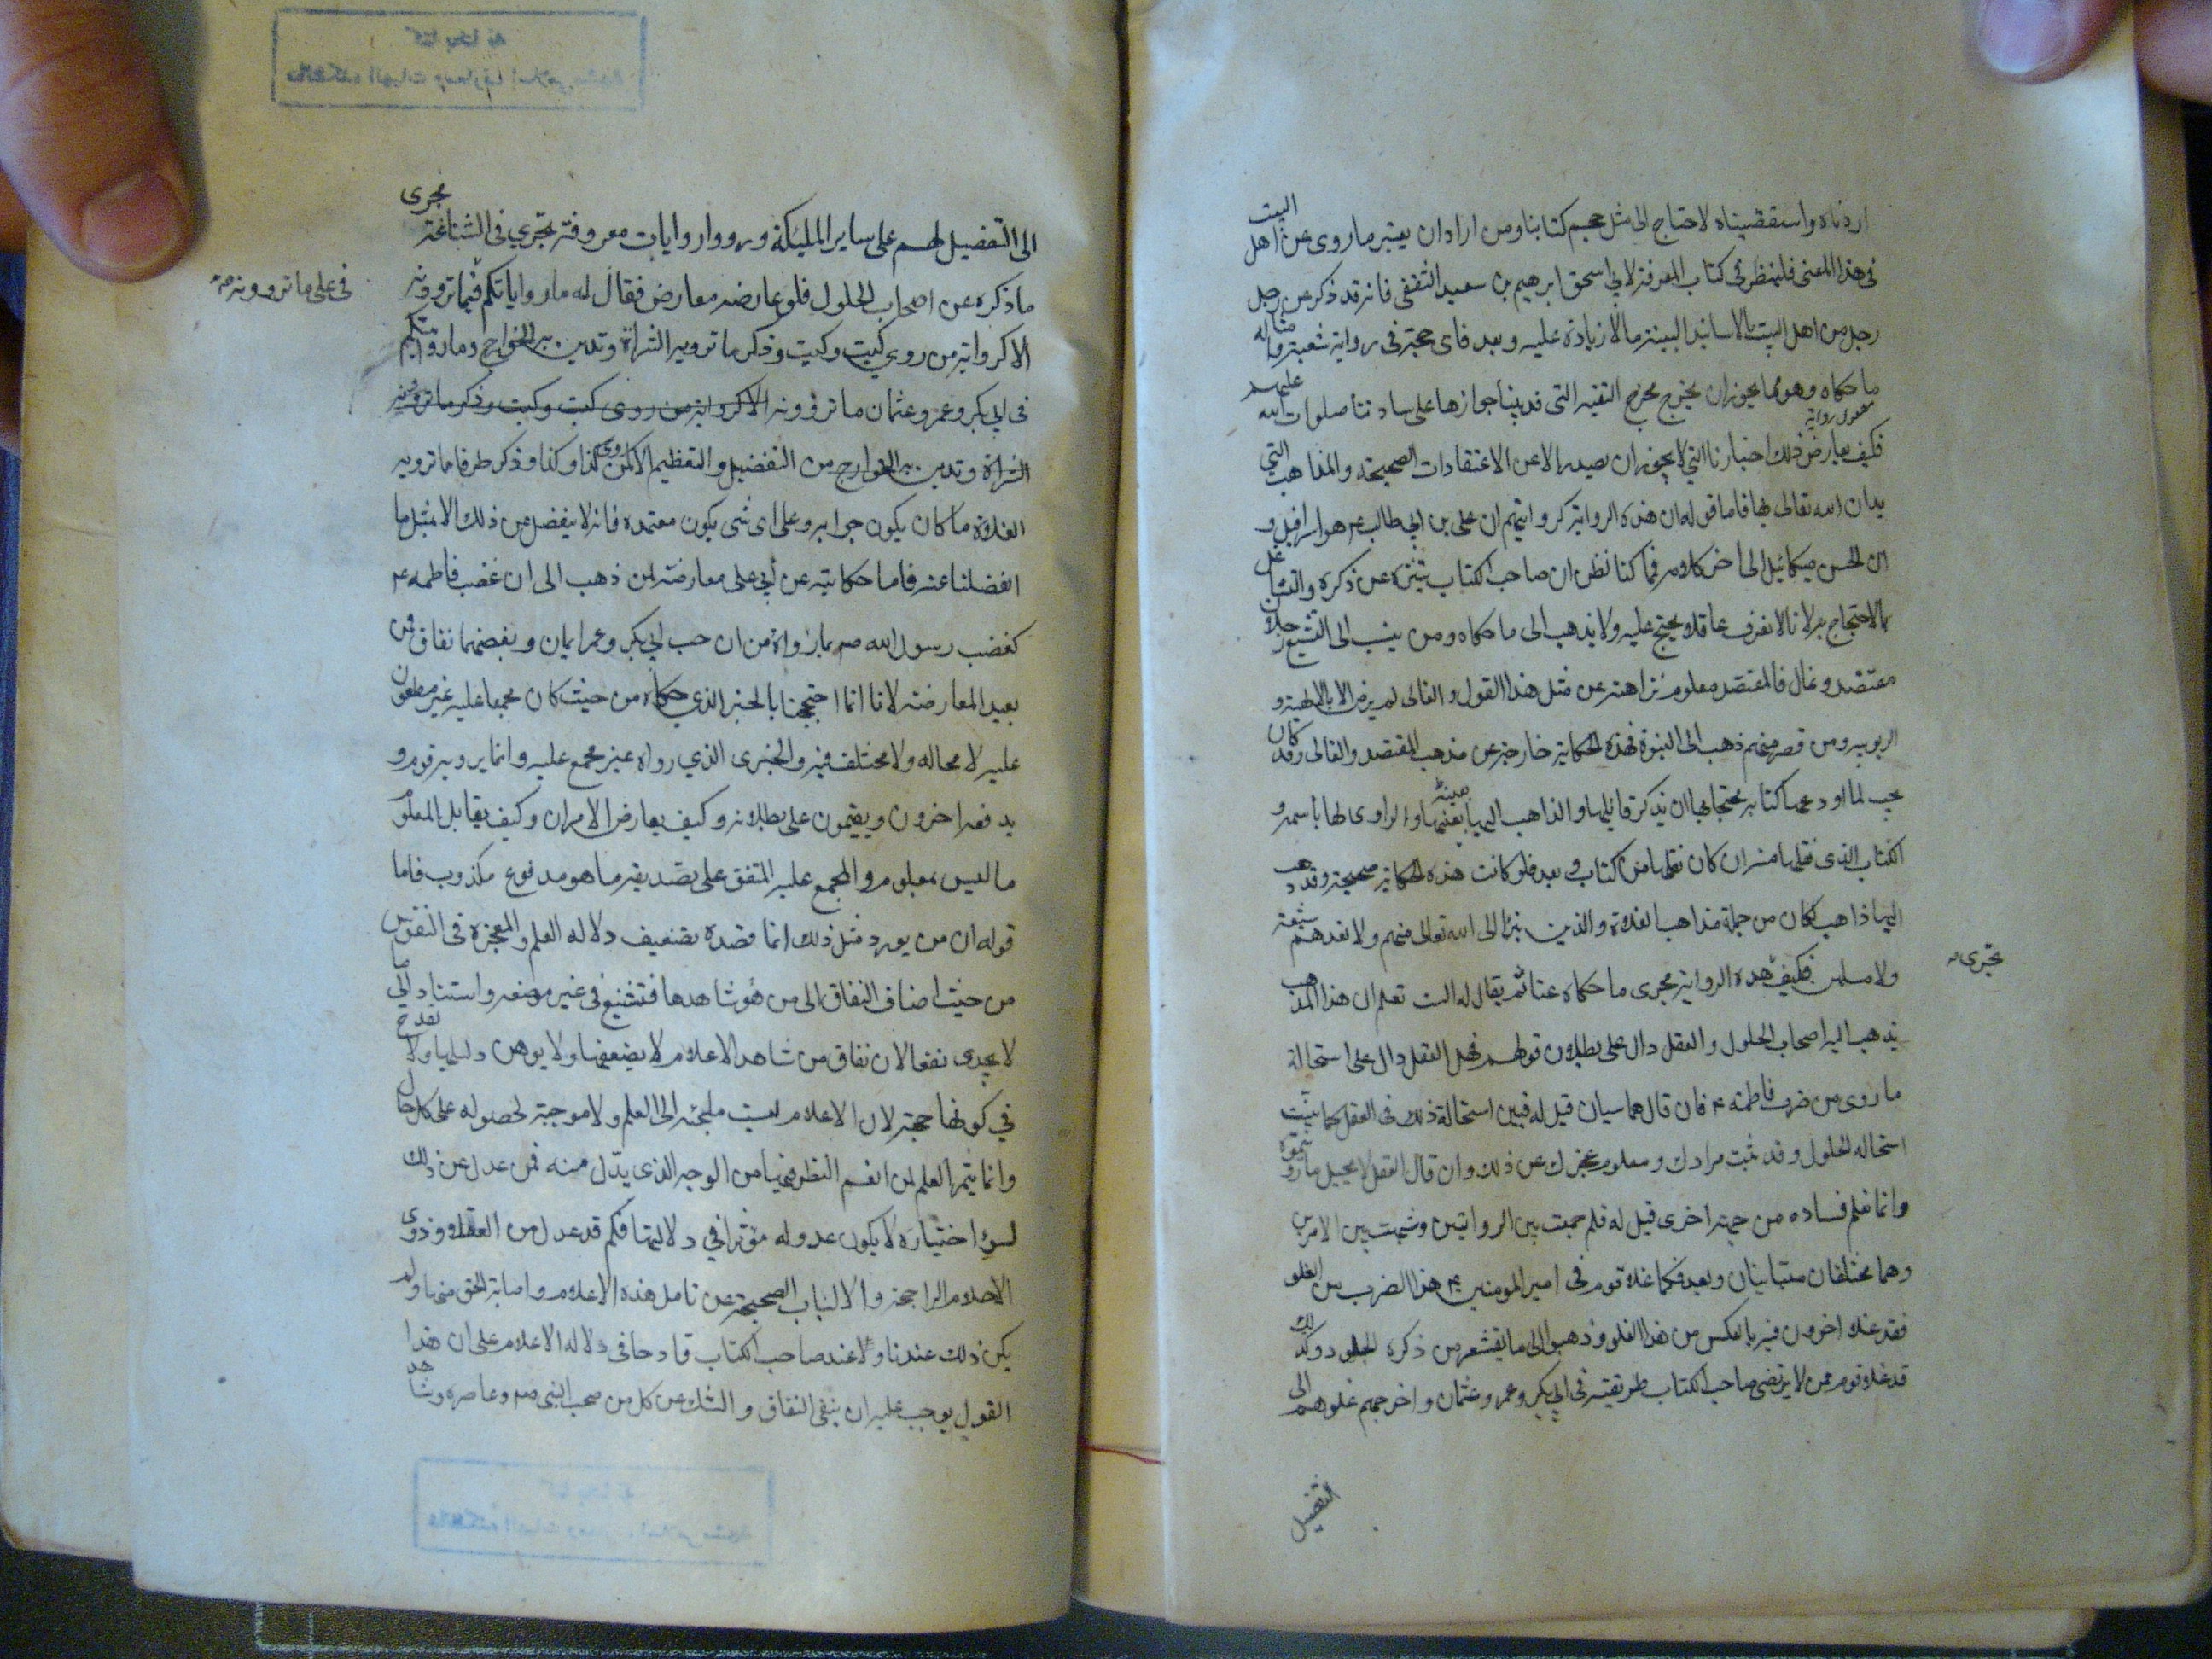 اردناه واستقصيناه لاحتاج الى مثل حجم كتابنا ومن اراد ان يعتبر ما روى عن اهل البيت
فى هذا المعنى فلينظر فى كتاب المعرفة لابى اسحق ابرهيم بن سعيد الثقفى فانه قد ذكر عن رجل
رجل من اهل البيت بالاسانيد البينة ما لا زيادة عليه وبعد فاى حجة فى رواية شعبة وامثاله
ما حكاه وهو مما يجوز ان يخرج مخرج التقية التى قد بينا جوازها على سادتنا صلوات الله عليهم
فكيف يعارض ذلك اخبارنا التى لا يجوز ان يصدر الا عن الاعتقادات الصحيحة والمذاهب التى
يدان الله تعالى بها فاما قوله ان هذه الرواية كروايتهم ان على بن ابى طالب ع هو اسرافيل و
ان الحسن ميكائيل الى اخر كلامه فما كنا نظن ان صاحب الكتاب يتنزه عن ذكره والتشاغل
بالاحتجاج به لانا لا نعرف عاقلا يحتج عليه ولا يذهب الى ما حكاه ومن ينسب الى التشيع رجلان
مقتصد وغال فالمقتصد معلوم نزاهته عن مثل هذا القول والغالى لم يرض الا بالالهية و
الربوبية ومن قصر منهم ذهب الى النبوة فهذه الحكاية خارجة عن مذهب المقتصد والغالى وقد كان
يجب لما اودعها كتابه محتجا بها ان يذكر قائلها والذاهب اليها بعينها والراوى لها باسمه و
الكتاب الذى نقلها منه ان كان نقلها من كتاب وبعد فلو كانت هذه الحكاية صحيحة وقد ذهب
اليها ذاهب لكان من جملة مذاهب الغلاة والذين نبرا الى الله تعالى منهم ولا نعدهم شيعة
ولا مسلمين فكيف هذه الرواية مجرى ما حكاه عنا ثم يقال له الست تعلم ان هذا المذهب
تجرى
يذهب اليه اصحاب الحلول والعقل دال على بطلان قولهم فهل العقل دال على استحالة
ما روى من ضرب فاطمة ع فان قال هما سيان قيل له فبين استحالة ذلك فى العقل كما بينت
استحاله الحلول وقد ثبت مرادك ومعلوم عجزك عن ذلك وان قال العقل لا يحيل ما رويتموه
وانما نعلم فساده من جهة اخرى قيل له فلم جمعت بين الروايتين وشبهت بين الامرين
وهما مختلفان متباينان وبعد فكما غلا قوم فى امير المومنين ع هذا الضرب من الغلو
فقد غلا اخرون فيه بالعكس من هذا الغلو وذهبوا الى ما يقشعر من ذكره الجلود وكذلك
قد غلا قوم ممن لا يرتضى صاحب الكتاب طريقته فى ابى بكر وعمر وعثمان واخرجهم غلوهم الى
التفضيل
الى التفضيل لهم على ساير المليكة ورووا روايات معروفة تجرى فى الشناعة مجرى
ما ذكره عن اصحاب الحلول فلو عارضه معارض فقال له ما رواياتكم فيما تروونه
فى على ما تروونه
الا كرواية من روى كيت وكيت وذكر ما ترويه الشراة وتدين به الخوارج وما روايتكم
فى ابى بكر وعمر وعثمان ما تروونه الا كرواية من روى كيت وكيت وذكر ما ترويه
الشراة وتدين به الخوارج من التفضيل والتعظيم الا كمن روى كذا وكذا وذكر طرفا مما ترويه
الغلاة ما كان يكون جوابه وعلى اى شى يكون معتمده فانه لا ينفصل من ذلك الا بمثل ما
انفصلنا عنه فاما حكايته عن أبى على معارضته لمن ذهب الى ان غضب فاطمه ع
كغضب رسول الله صم بما رواه من ان حب ابى بكر وعمر ايمان وبغضهما نفاق فمن
بعيد المعارضة لانا انما احتججنا بالخبر الذى حكاه من حيث كان مجمعا عليه غير مطعون
عليه لا محاله ولا مختلف فيه والخبر الذي رواه غير مجمع عليه وانما يرويه قوم و
يدفعه اخرون ويقيمون على بطلانه وكيف يعارض الامران وكيف يقابل المعلوم
ما ليس بمعلوم والمجمع عليه المتفق على تصديقه ما هو مدفوع مكذوب فاما
قوله ان من يورد مثل ذلك انما قصده تضعيف دلاله العلم والمعجزة فى النفوس
من حيث اضاف النفاق الى من شاهدها فتشنيع فى غير موضعه واستناد الى ما
لا يجدى نفعا لان نفاق من شاهد الاعلام لا يضعفها ولا يوهن دليلها ولا يقدح
في كونها حجة لان الاعلام ليست ملجئه الى العلم ولا موجبة لحصوله على كل حال
وانما يثمر العلم لمن انعم النظر فيها من الوجه الذى يدل منه فمن عدل عن ذلك
لسوء اختياره لا يكون عدوله مؤثرا في دلالتها فكم قد عدل من العقلاء وذوى
الاحلام الراجحة والالباب الصحيحة عن تامل هذه الاعلام واصابة الحق منها ولم
يكن ذلك عندنا ولا عند صاحب الكتاب قادحا فى دلاله الاعلام على ان هذا
القول يوجب عليه ان ينفى النفاق والشك عن كل من صحب النبى صم وعاصره وشاهد